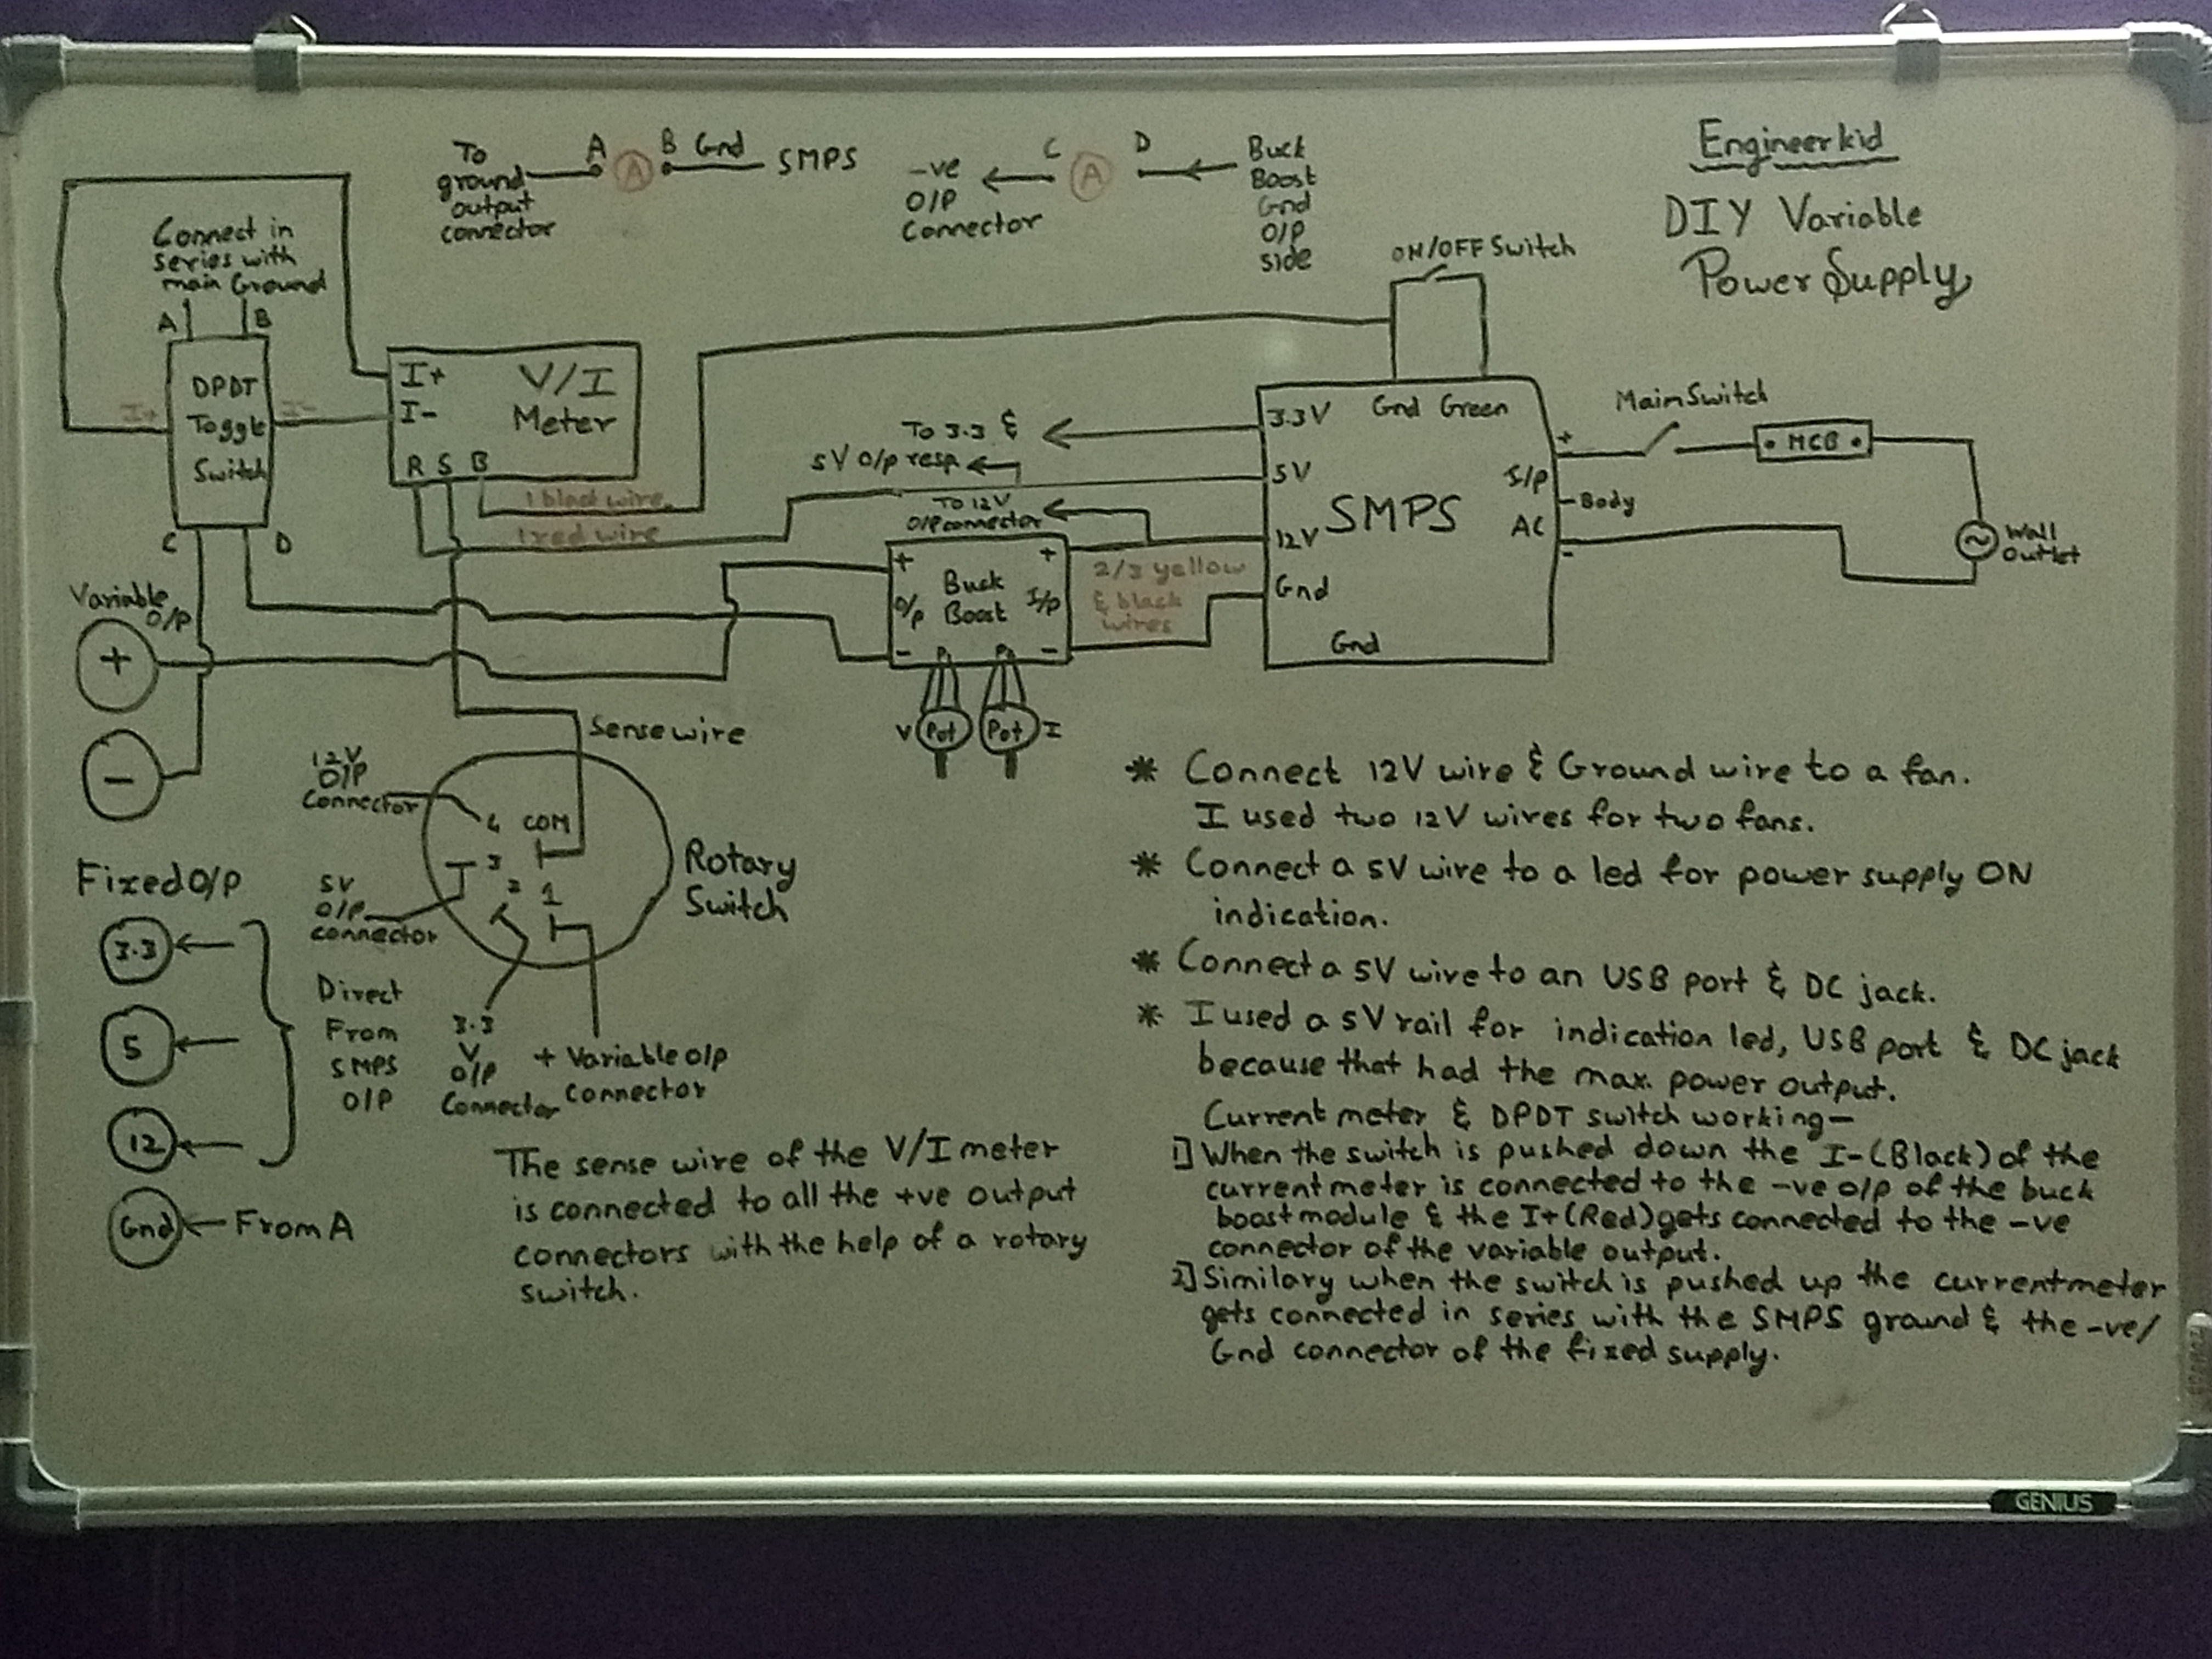 Engineerkid
DIY Variable
Power Supply
To
ground
output
connector
A
A
B
Gnd
SMPS
-ve
O/P
Connector
C
A
D
Buck
Boost
Gnd
O/P
side
ON/OFF Switch
Connect in
series with
main Ground
A
B
I+
DPDT
Toggle
Switch
I-
C
D
I+
I-
V/I
Meter
R
S
B
1 black wire
1 red wire
To 3.3 &
5V O/p resp
To 12V
O/P connector
3.3V
Gnd
Green
5V
SMPS
12V
Gnd
Gnd
I/P
AC
+
-
Body
Main Switch
MCB
Wall
outlet
+
+
Buck
Boost
O/p
I/p
-
-
2/3 yellow
& black
wires
P
P
V
Pot
Pot
I
Variable
O/P
+
-
Sense wire
12V
O/P
Connector
4
COM
3
2
1
Rotary
Switch
5V
O/P
connector
3.3
V
O/P
Connector
+ Variable O/p
Connector
Fixed O/p
3.3
5
12
Gnd
From A
Direct
From
SMPS
O/P
The sense wire of the V/I meter
is connected to all the +ve output
connectors with the help of a rotary
switch.
* Connect 12V wire & Ground wire to a fan.
I used two 12V wires for two fans.
* Connect a 5V wire to a led for power supply ON
indication.
* Connect a 5V wire to an USB port & DC jack.
* I used a 5V rail for indication led, USB port & DC jack
because that had the max. power output.
Current meter & DPDT switch working-
1] When the switch is pushed down the I-(Black) of the
current meter is connected to the -ve o/p of the buck
boost module & the I+(Red) gets connected to the -ve
connector of the variable output.
2] Similary when the switch is pushed up the current meter
gets connected in series with the SMPS ground & the -ve/
Gnd connector of the fixed supply.
GENIUS